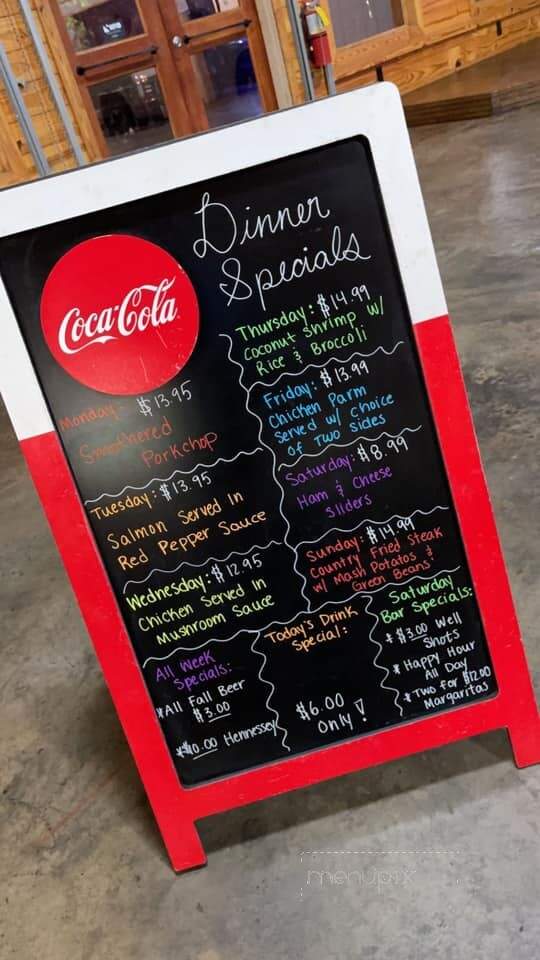 Dinner
Specials
Coca-Cola
Monday - $13.95
Smothered
Porkchop
Tuesday: $13.95
Salmon Served In
Red Pepper Sauce
Wednesday: $12.95
Chicken Served In
Mushroom Sauce
Thursday: $14.99
Coconut Shrimp w/
Rice & Broccoli
Friday: $13.99
Chicken Parm
Served w/ Choice
of Two Sides
Saturday: $8.99
Ham & Cheese
Sliders
Sunday: $14.99
Country Fried Steak
w/ Mash Potatos &
Green Beans
All Week
Specials:
*All Fall Beer
$3.00
*$10.00 Hennessey
Today's Drink
Special:
$6.00
Only!
Saturday
Bar Specials:
* $3.00 Well
Shots
* Happy Hour
All Day
* Two for $12.00
Margaritas
menupix